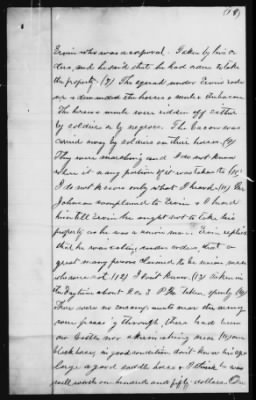 (18)
Ervin who was a corporal. Taken by his or
ders, and he said that he had orders to take
the property (7) The squad under Ervin rode
over & demanded the horses & mule &
The horses & mule were ridden off either
by soldiers or by negroes. The bacon was
carried away by soldiers on their horses. (9)
They were marching and I do not know
where it any portion of it was taken to (10)
I do not know only what I heard. (11) Mr
Johnson complained to Ervin & I heard
him tell Ervin he ought not to take his
property as he was a union man. Ervin replied
that he was acting under orders, that a
great many persons claimed to be union men
who were not. (12) I don't know. (13) taken in
the daytime about 2 or 3 P.M. taken openly (14)
There were no encampments near the army
were passing through, there had been
no battle nor skirmishing near (15)
black horse, in good condition, don't know his age
large & good saddle horse & I think he was
well worth one hundred and fifty dollars. One